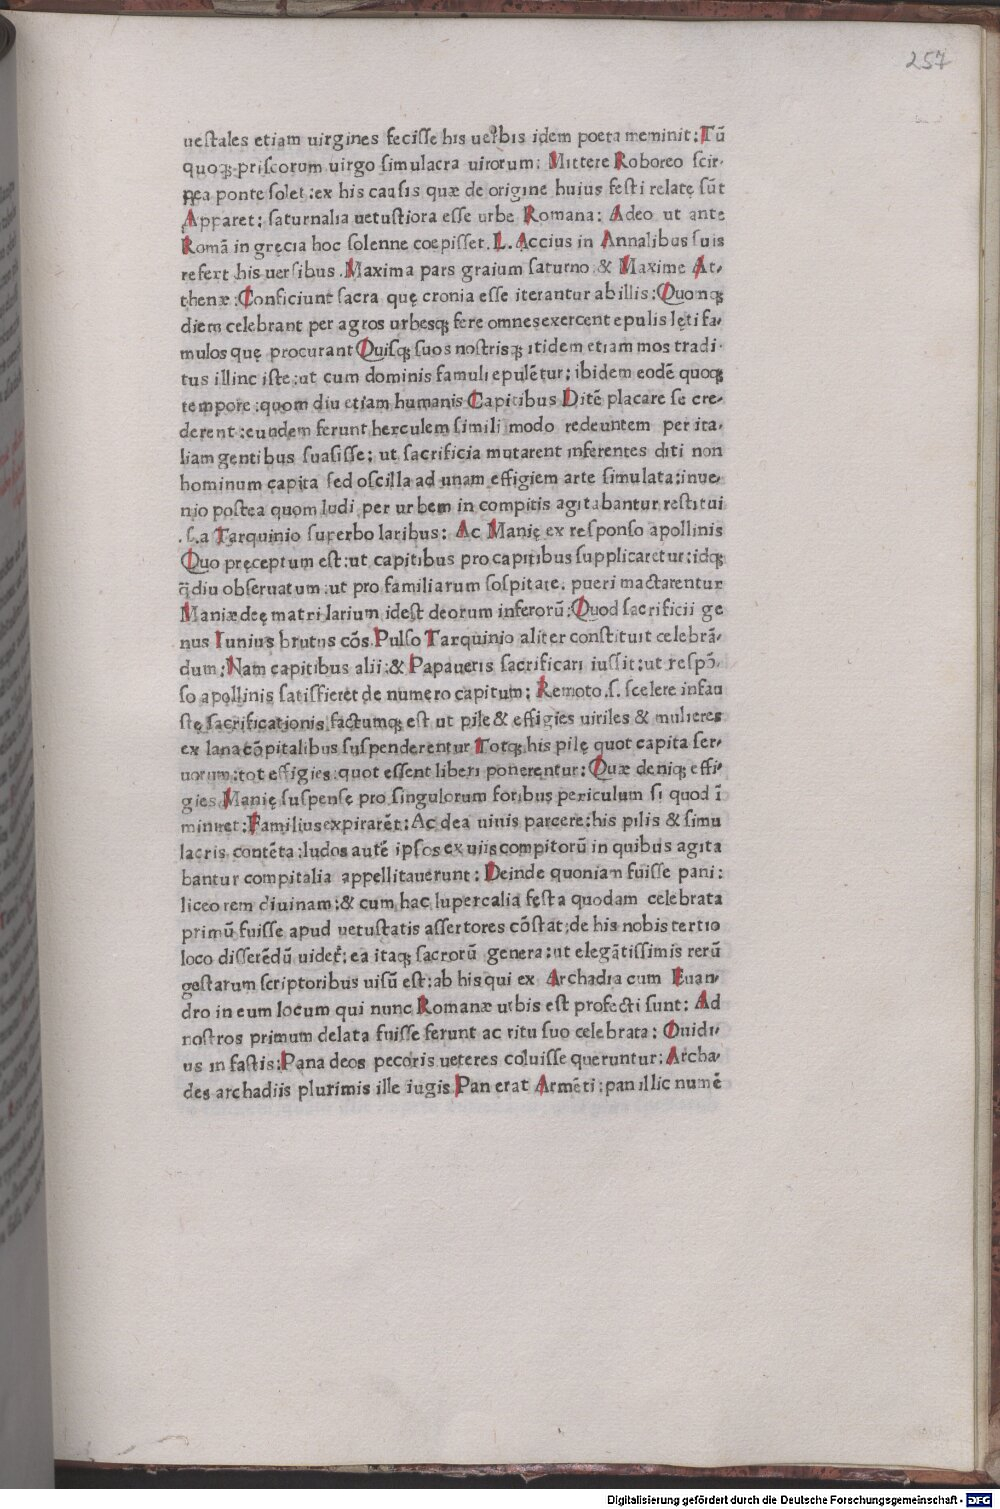 257
ueſtales etiam uirgines feciſſe his uerbis idem poeta meminit: Tũ
quoqꝫ priſcorum uirgo ſimulacra uirorum: Mittere Roboreo ſcir-
pea ponte ſolet: ex his cauſis quæ de origine huius feſti relatę ſũt
Apparet: ſaturnalia uetuſtiora eſſe urbe Romana: Adeo ut ante
Romã in gręcia hoc ſolenne coepiſſet. L. Accius in Annalibus ſuis
refert his uerſibus. Maxima pars graium ſaturno & Maxime At-
thenæ: Conficiunt ſacra quę cronia eſſe iterantur ab illis: Quomqꝫ
diem celebrant per agros urbesqꝫ fere omnes exercent epulis lęti fa-
mulos quę procurant Quiſqꝫ ſuos noſtrisqꝫ itidem etiam mos tradi-
tus illinc iſte: ut cum dominis famuli epulẽtur: ibidem eodẽ quoqꝫ
tempore: quom diu etiam humanis Capitibus Ditẽ placare ſe cre-
derent: eundem ferunt herculem ſimili modo redeuntem per ita-
liam gentibus ſuaſiſſe: ut ſacrificia mutarent inferentes diti non
hominum capita ſed oſcilla ad unam effigiem arte ſimulata: inue-
nio poſtea quom ludi per urbem in compitis agitabantur reſtitui
.ſ. a Tarquinio ſuperbo laribus: Ac Manię ex reſponſo apollinis
Quo pręceptum eſt: ut capitibus pro capitibus ſupplicaretur: idqꝫ
q̃diu obſeruatum: ut pro familiarum ſoſpitate. pueri mactarentur
Maniæ deę matri larium ideſt deorum inferorũ: Quod ſacrificii ge
nus Iunius brutus cõs. Pulſo Tarquinio aliter conſtituit celebrã-
dum: Nam capitibus alii: & Papaueris ſacrificari iuſſit: ut reſpõ-
ſo apollinis ſatiſfieret de numero capitum: Remoto .ſ. ſcelere infau
ſtę ſacrificationis factumqꝫ eſt ut pile & effigies uiriles & mulieres
ex lana cõpitalibus ſuſpenderentur Totqꝫ his pilę quot capita ſer-
uorum: tot effigies: quot eſſent liberi ponerentur: Quæ deniqꝫ effi-
gies Manię ſuſpenſę pro ſingulorum foribus periculum ſi quod ĩ
minuet: Familius expirarẽt: Ac dea uiuis parcere: his pilis & ſimu
lacris contẽta: ludos autẽ ipſos ex uiis compitorũ in quibus agita
bantur compitalia appellitauerunt: Deinde quoniam fuiſſe pani:
liceo rem diuinam: & cum hac lupercalia feſta quodam celebrata
primũ fuiſſe apud uetuſtatis aſſertores cõſtat: de his nobis tertio
loco diſſerẽdũ uidet̃: ea itaqꝫ ſacrorũ genera: ut elegãtiſſimis rerũ
geſtarum ſcriptoribus uiſũ eſt: ab his qui ex Archadia cum Euan-
dro in eum locum qui nunc Romanæ urbis eſt profecti ſunt: Ad
noſtros primum delata fuiſſe ferunt ac ritu ſuo celebrata: Ouidi-
us in faſtis: Pana deos pecoris ueteres coluiſſe queruntur: Archa-
des archadiis plurimis ille iugis Pan erat Armẽti: pan illic numẽ
Digitalisierung gefördert durch die Deutsche Forschungsgemeinschaft - DFG